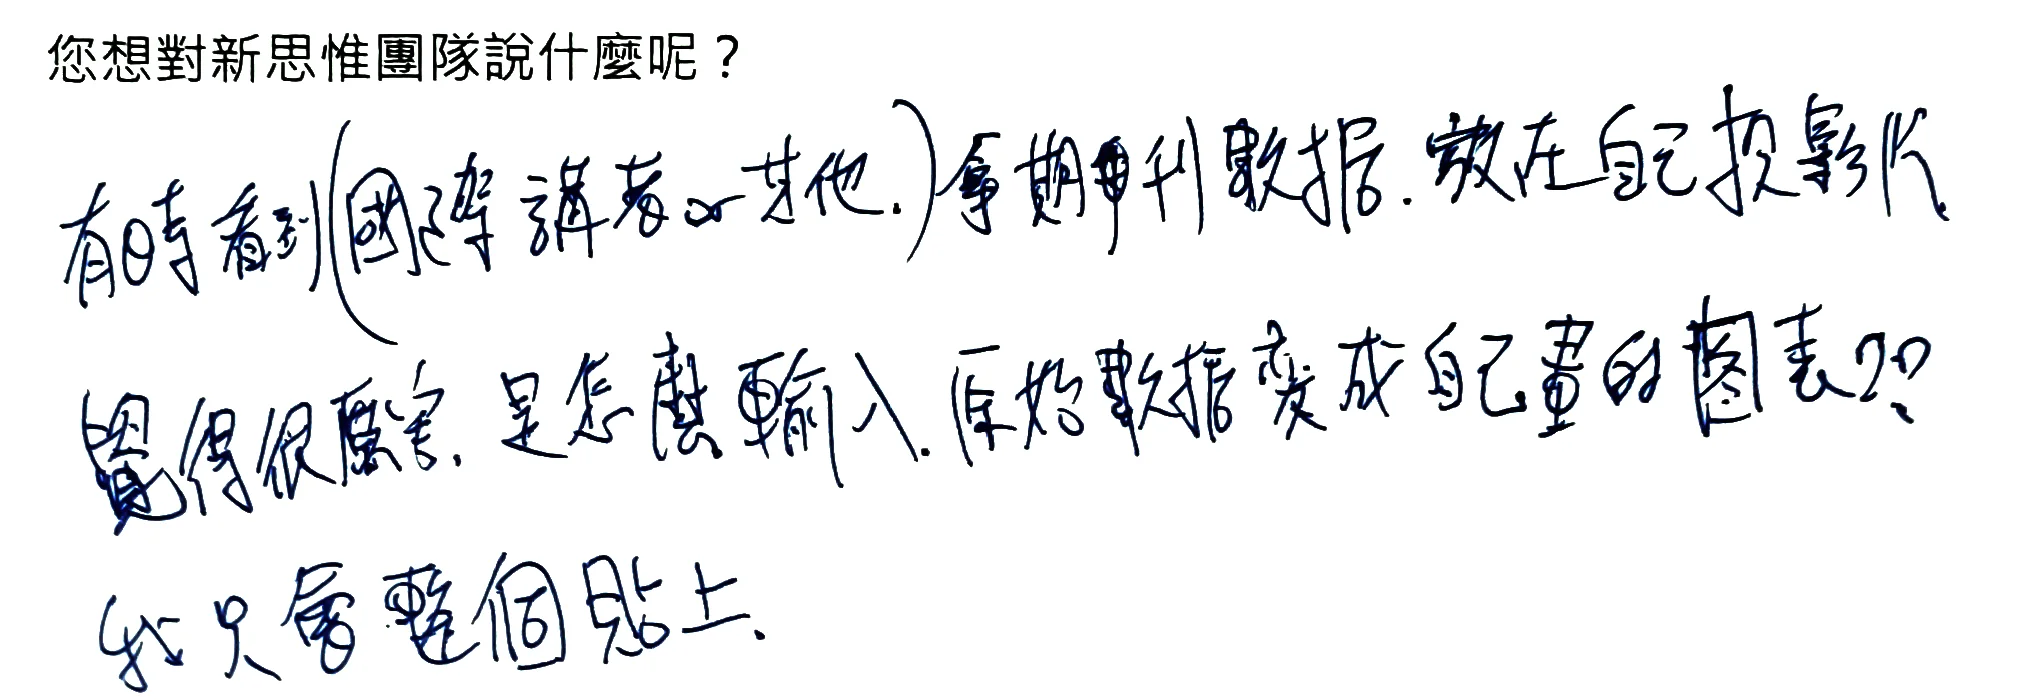 您想對新思惟團隊說什麼呢？
有時看到(國際講者or其他.)拿期刊数据.放在自己投影片
覺得很厲害.是怎麼輸入.原始数据变成自己畫的图表??
我只會整個貼上.